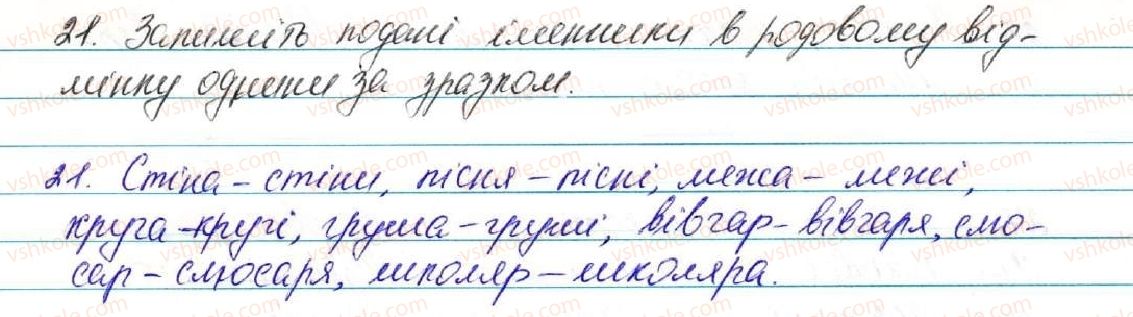 21. Запишіть подані іменники в родовому від-
мінку однини за зразком.
21. Стіна – стіни, пісня – пісні, межа – межі,
круча – кручі, груша – груші, вівчар – вівчаря, слю-
сар – слюсаря, школяр – школяра.